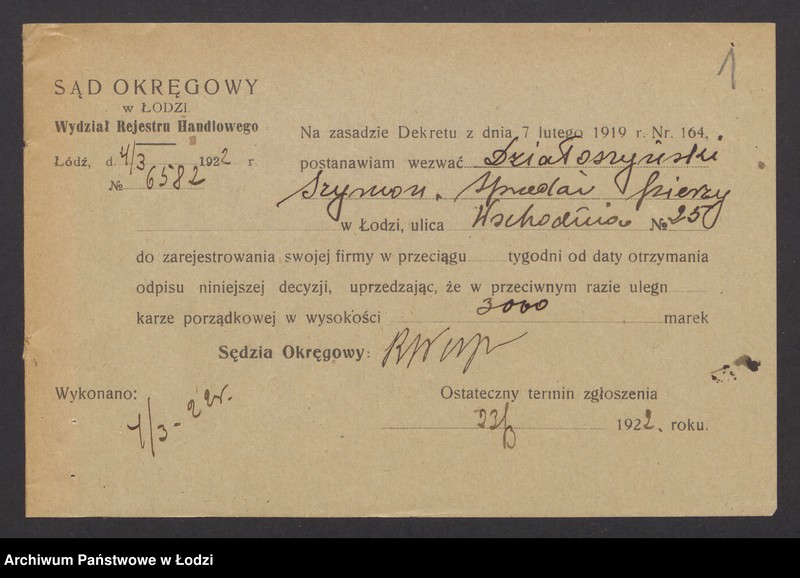 1
SĄD OKRĘGOWY
w ŁODZI
Wydział Rejestru Handlowego
Łódź, d. 4/3 1922 r.
№ 6582
Na zasadzie Dekretu z dnia 7 lutego 1919 r. Nr. 164,
postanawiam wezwać Działoszyński
Szymon. Sprzedaż pierzy
w Łodzi, ulica Wschodnia № 25
do zarejestrowania swojej firmy w przeciągu tygodni od daty otrzymania
odpisu niniejszej decyzji, uprzedzając, że w przeciwnym razie ulegn
karze porządkowej w wysokości 3000 marek
Sędzia Okręgowy:
Wykonano:
4/3 - 22r.
Ostateczny termin zgłoszenia
1922. roku.
Archiwum Państwowe w Łodzi